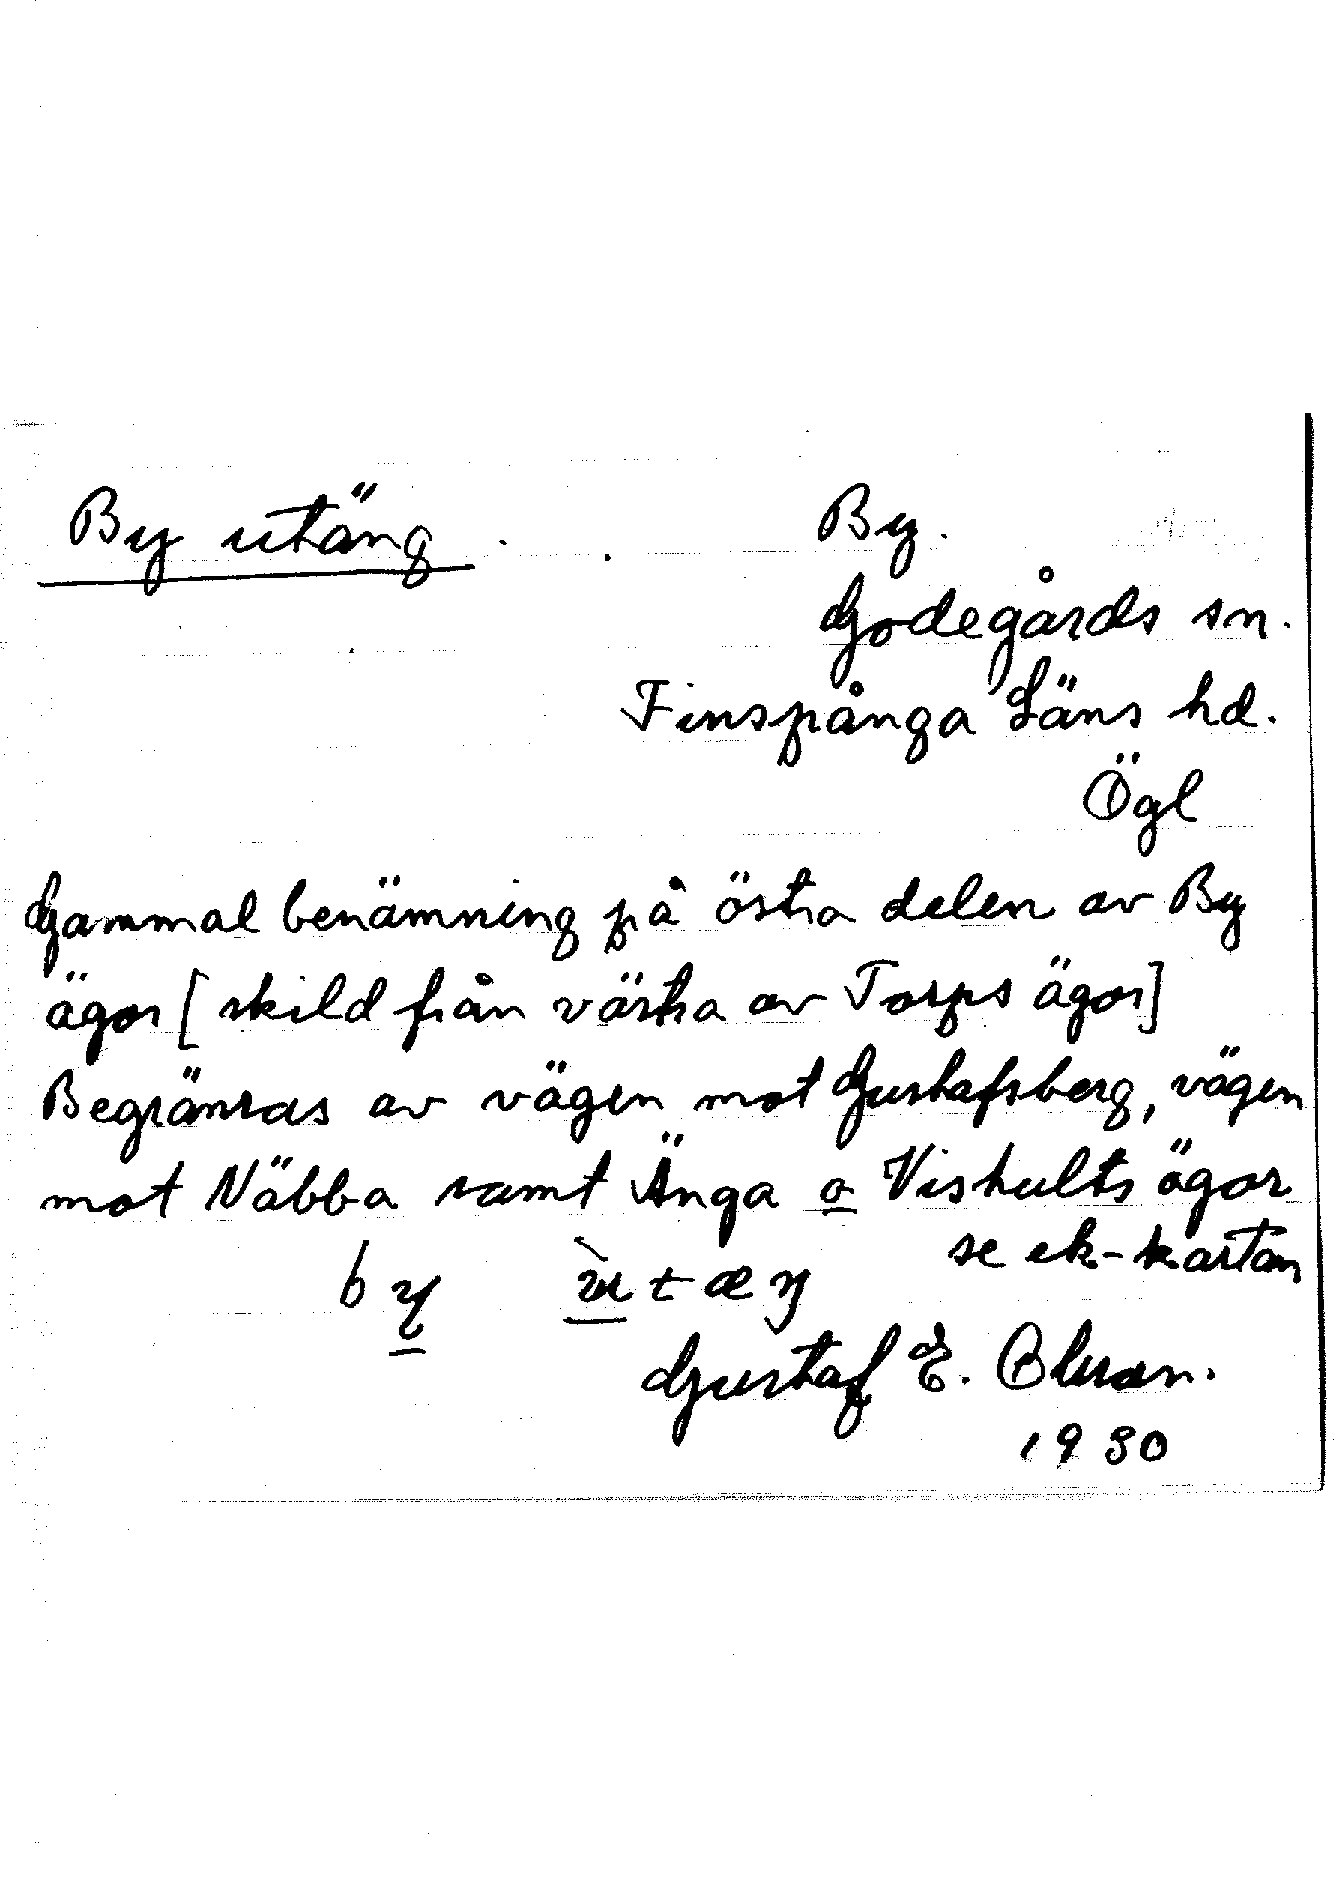 By utäng.
By.
Godegårds sn.
Finspånga Läns hd.
Ögl
Gammal benämning på östra delen av By
ägor [skild från västra av Torps ägor]
Begränsas av vägen mot Gustafsberg, vägen
mot Näbba samt Änga o Vishults ägor
se ek-kartan
by ùtæŋ
Gustaf E.
1930